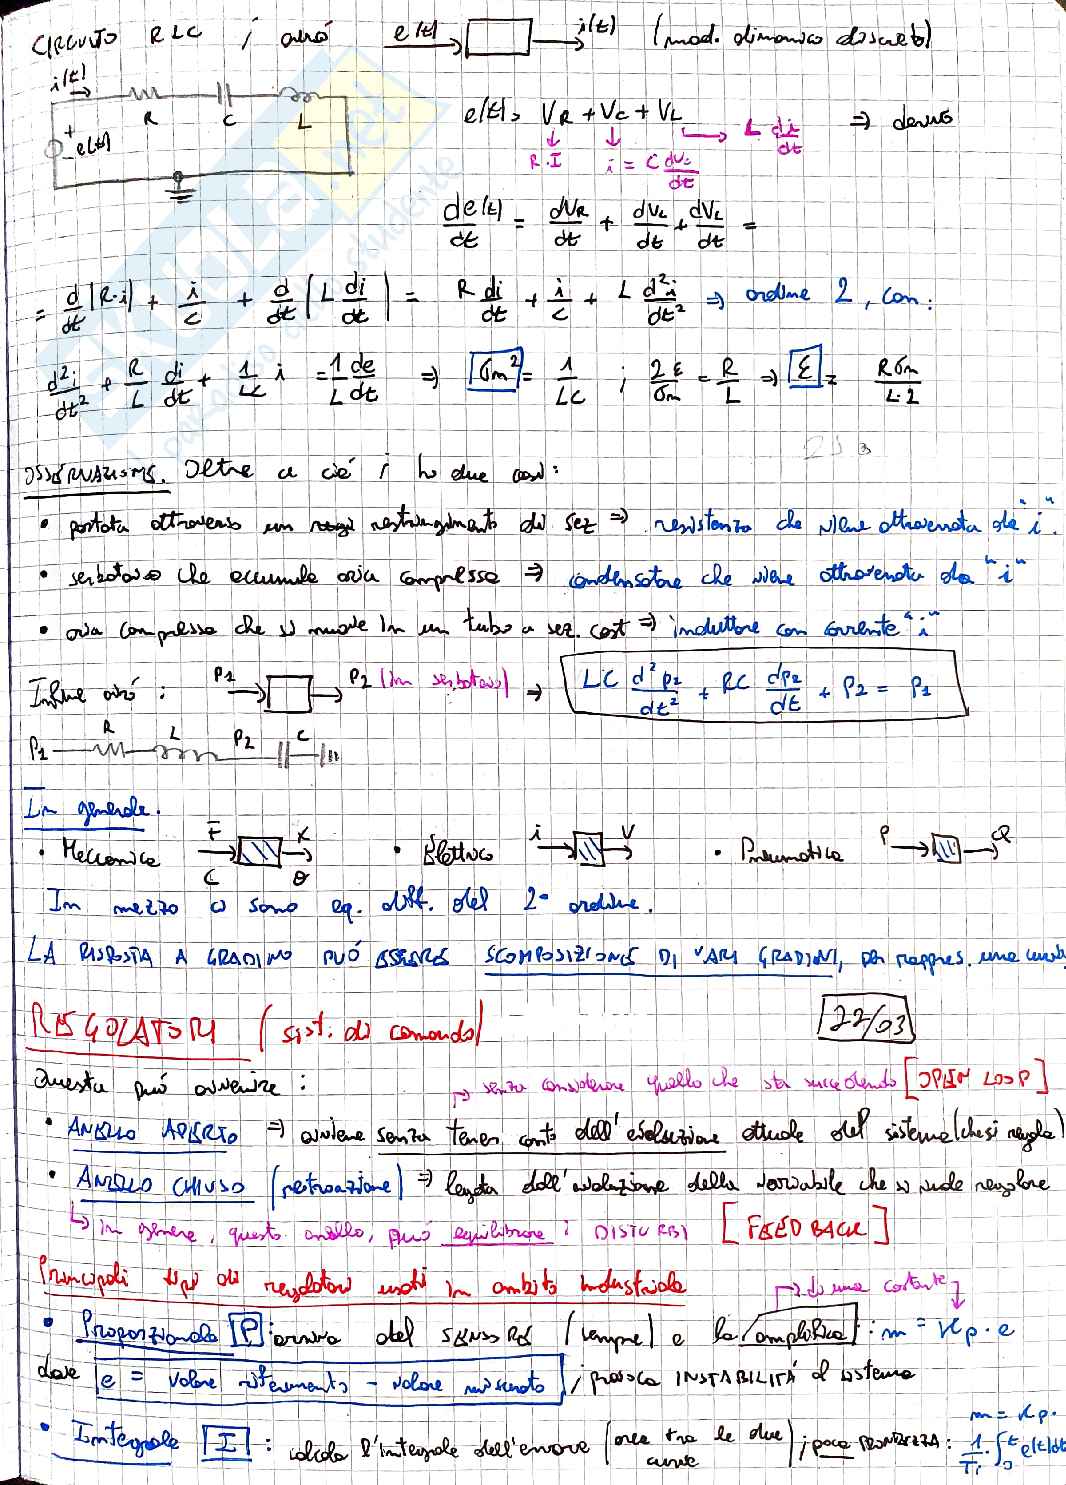 CIRCUITO RLC ; avrò e(t) i(t) (mod. dinamico discreto)
i(t)
R C L
+ - e(t)
e(t) = VR + VC + VL ⇒ derivo
R·I i = C dVc/dt L di/dt
de(t)/dt = dVR/dt + dVc/dt + dVL/dt =
= d/dt (R·i) + i/C + d/dt (L di/dt) = R di/dt + i/C + L d²i/dt² ⇒ ordine 2, con:
d²i/dt² + R/L di/dt + 1/LC i = 1/L de/dt ⇒ σm² = 1/LC ; 2ε/σm = R/L ⇒ ε = Rσm/L·2
OSSERVAZIONE. Oltre a ciò, ho due casi:
• portata attraverso un restringimento di sez ⇒ resistenza che viene attraversata da "i".
• serbatoio che accumula aria compressa ⇒ condensatore che viene attraversata da "i"
• aria compressa che si muove in un tubo a sez. cost ⇒ induttore con corrente "i"
Infine avrò: P1 P2 (in serbatoio) ⇒ LC d²p2/dt² + RC dp2/dt + P2 = P1
P1 R L P2 C
In generale.
• Meccanica F C X θ • Elettrico i V • Pneumatica P Q
In mezzo ci sono eq. diff. del 2° ordine.
LA RISPOSTA A GRADINO PUÓ ESSERE SCOMPOSIZIONE DI VARI GRADINI, per rappres. una curva
REGOLATORI (sist. di comando) 22/03
Questa può avvenire: → senza considerare quello che sta succedendo [OPEN LOOP]
• ANELLO APERTO ⇒ avviene senza tener conto dell'evoluzione attuale del sistema (che si regola)
• ANELLO CHIUSO (retroazione) ⇒ legata dall'evoluzione della variabile che si vuole regolare
↳ in genere, questo anello, può equilibrare i DISTURBI [FEED BACK]
Principali tipi di regolatori usati in ambito industriale → di una costante
• Proporzionale [P]: arriva dal SENSORE (sempre) e la amplifica: m = Kp · e
dove e = valore riferimento - valore misurato ; provoca INSTABILITÁ al sistema
• Integrale [I]: calcola l'integrale dell'errore (area tra le due curve) ; poca PRONTEZZA: m = Kp · 1/Ti · ∫₀ᵗ e(t)dt